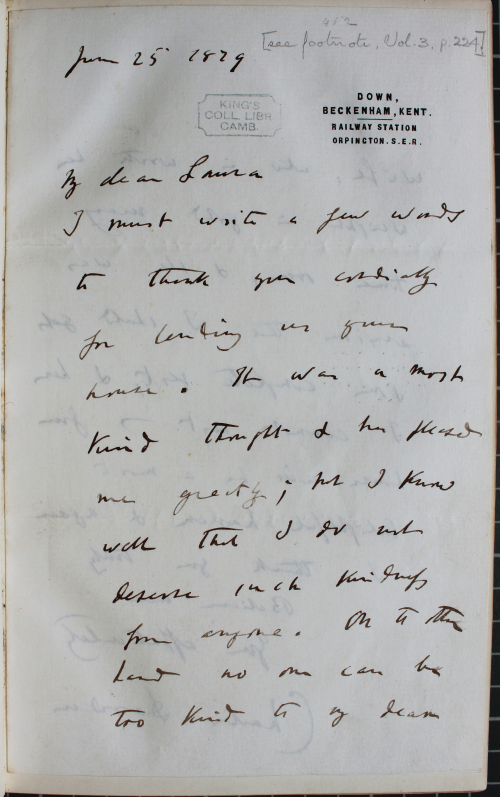 952
[see footnote, Vol. 3, p. 224]
June 25 1879
KING'S
COLL. LIBR.
CAMB.
DOWN,
BECKENHAM, KENT.
RAILWAY STATION
ORPINGTON. S.E.R.
My dear Laura
I must write a few words
to thank you cordially
for lending us your
house. It was a most
kind thought & has pleased
me greatly; but I know
well that I do not
deserve such kindness
from anyone. On the other
hand no one can be
too kind to my dear